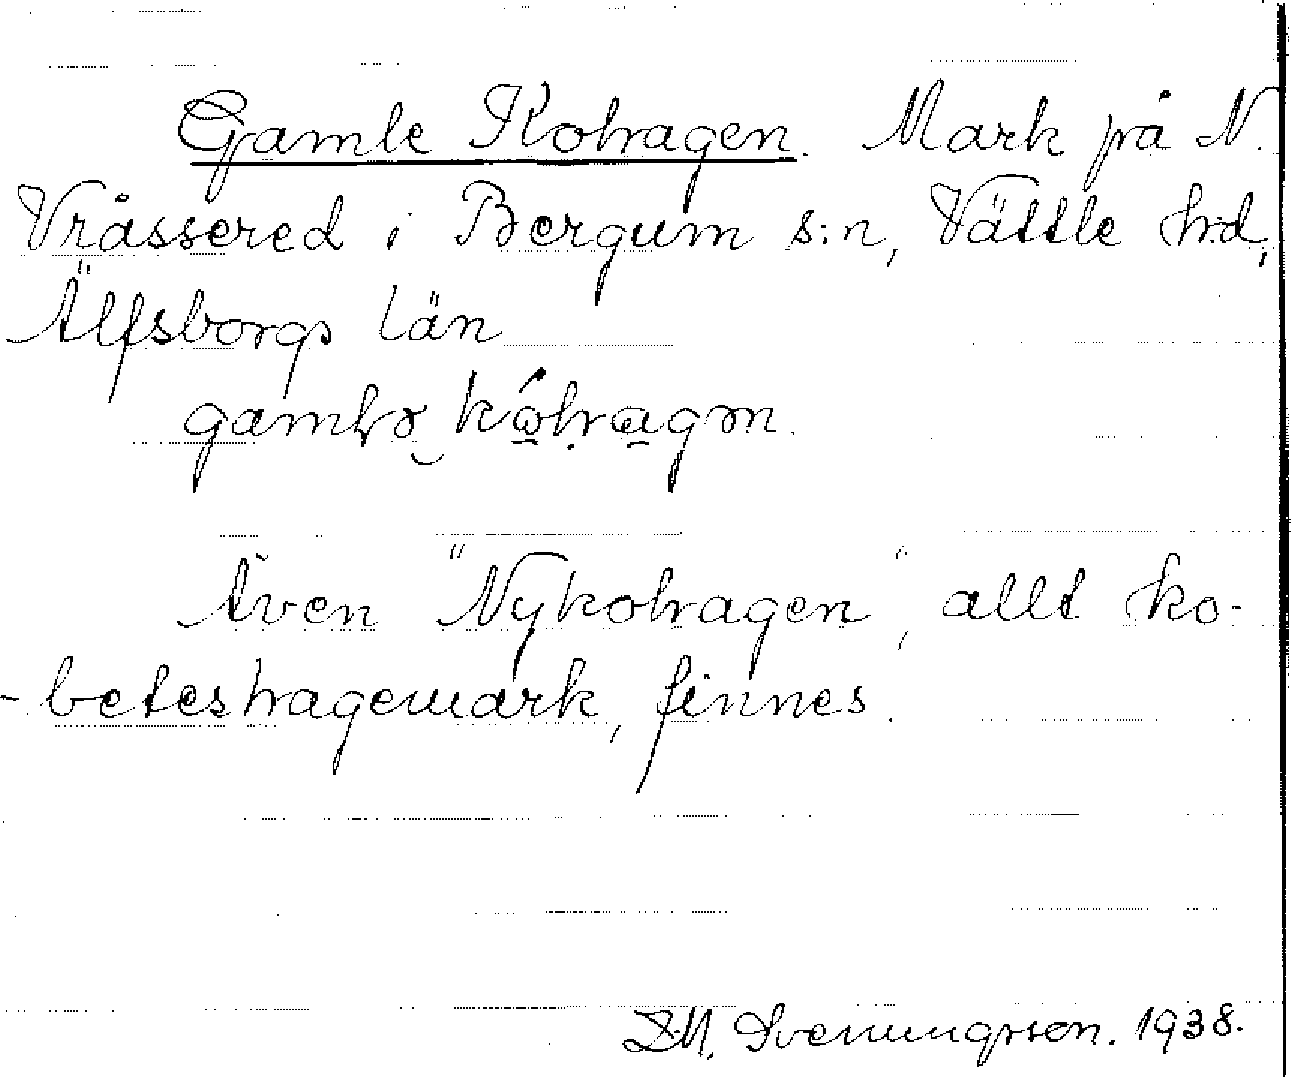 Gamle Kohagen. Mark på N.
Vråssered i Bergum s:n, Vättle hd,
Älfsborgs län
Även "Nykohagen", allt ko-
-beteshagemark, finnes.
D.M. Svenungsson. 1938.